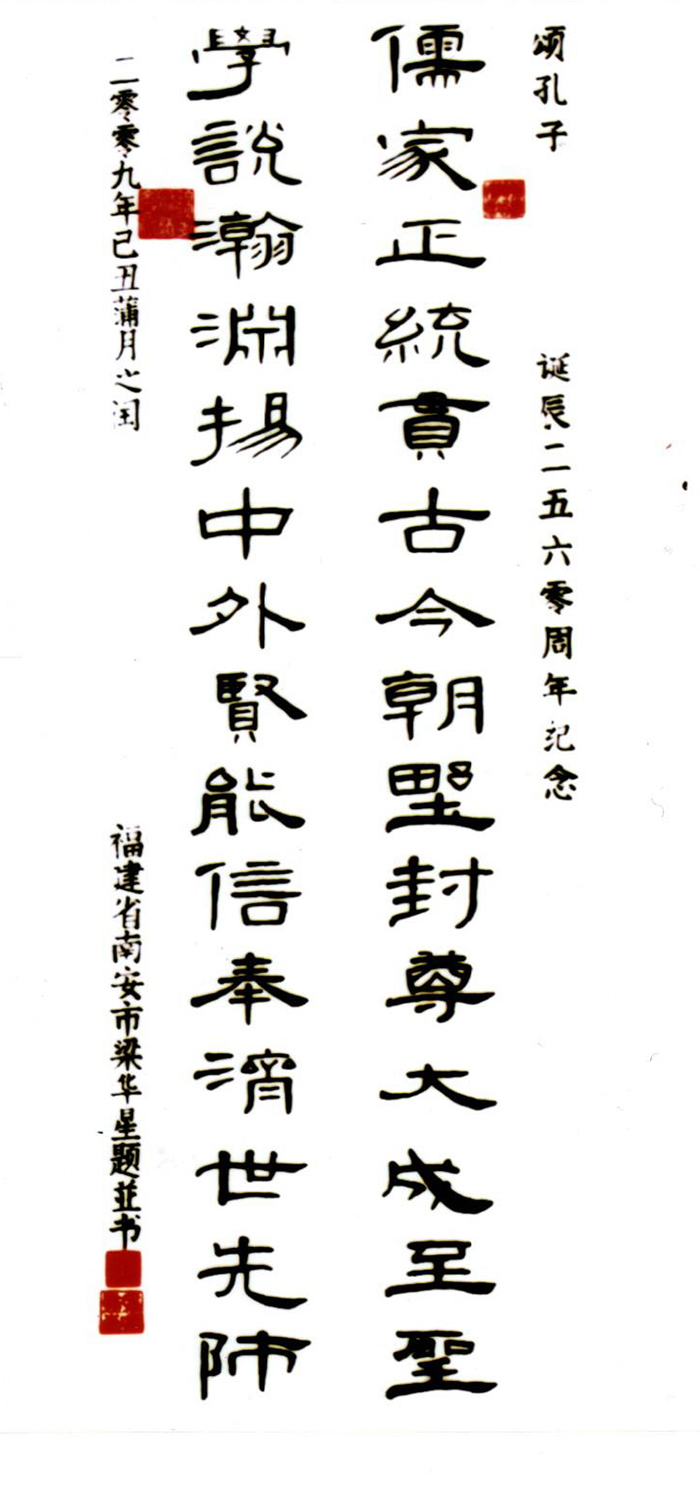 颂孔子
诞辰二五六零周年纪念
儒家正統貫古今朝埜封尊大成至聖
學說瀚淵揚中外賢能信奉濟世先師
二零零九年己丑蒲月之闰
福建省南安市梁华星题并书